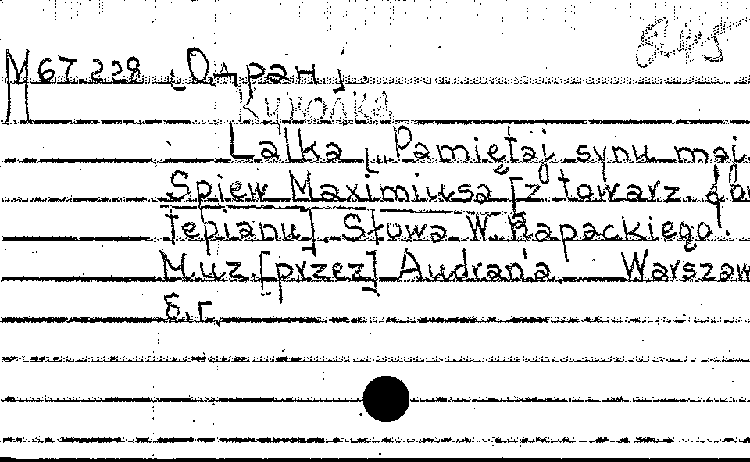 845
М 67.228 [Одран].
Куколка
Lalka [... Pamiętaj synu maj
Spiew Maximiusa [z towarz. for
tepianu]. Słowa W. Rapackiego.
Muz. [przez] Audran'a. Warszaw
б.г.